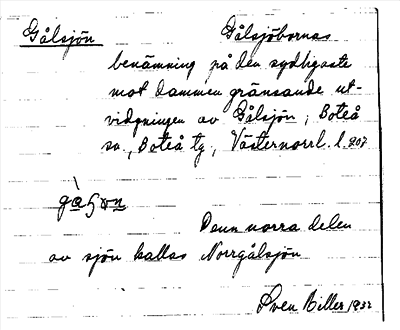 Gålsjön Gålsjöbornas
benämning på den sydligaste
mot dammen gränsande ut-
vidgningen av Gålsjön, Boteå
sn, Boteå tg, Västernorrl. l. 207
Den norra delen
av sjön kallas Norrgålsjön
Sven Biller 1932